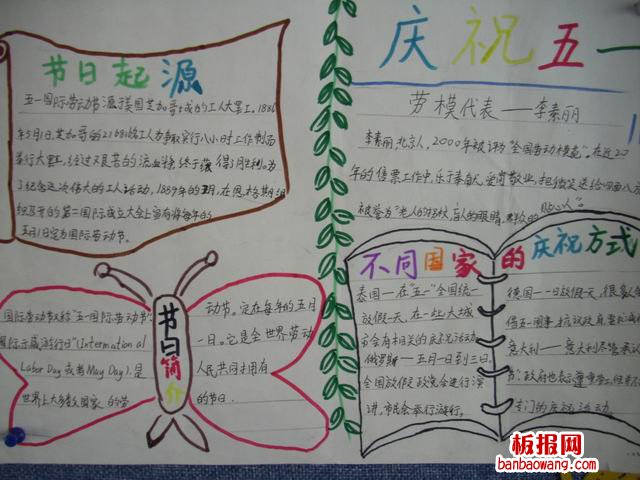 节日起源
五一国际劳动节源于美国芝加哥城的工人大罢工。1886
年5月1日,芝加哥的216816名工人为争取实行八小时工作制而
举行大罢工,经过艰苦的流血,终于获得了胜利。为
了纪念这次伟大的工人运动,1889年的7月,在恩格斯组
织召开的第二国际成立大会上宣布将每年的
五月1日定为国际劳动节。
庆祝五一
劳模代表——李素丽
李素丽,北京人,2000年被评为"全国劳动模范"。在近20
年的售票工作中,乐于奉献,爱岗敬业,把微笑送给四面八方
被誉为"老人的拐杖,盲人的眼睛,群众的
贴心人"。
节日简介
国际劳动节又称"五一国际劳动节"
国际示威游行日"(International
Labor Day或者May Day),是
世界上大多数国家的劳
动节。定在每年的五月
一日。它是全世界劳动
人民共同拥有
的节日。
不同国家的庆祝方式
泰国——在"五一"全国统一
放假一天,在一些大城
市会有相关的庆祝活动。
俄罗斯——五月一日到三日
全国放假,政党会进行演
讲,市民会举行游行。
德国——1日放假一天,很多人会
借五一闹事,抗议政府
意大利——意大利尽管承认
节,政府也表示尊重劳工,但并不
专门的庆祝活动。
板报网
banbaowang.com